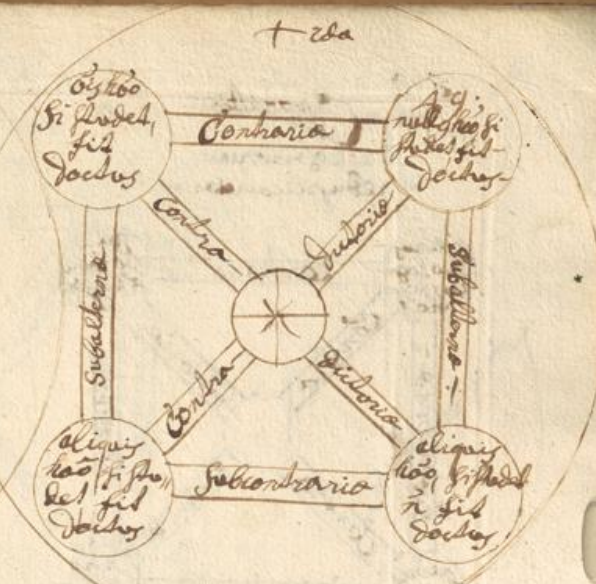 oīs hōo
si studet,
fit
doctus
Contraria
null9 hōo si
studet fit
doctus
Contra-
dictoria
Subalterna
Subalterna
Contra-
dictoria
aliquis
hōo si stu-
det fit
doctus
Subcontraria
aliquis
hōo, si studet
ñ fit
doctus